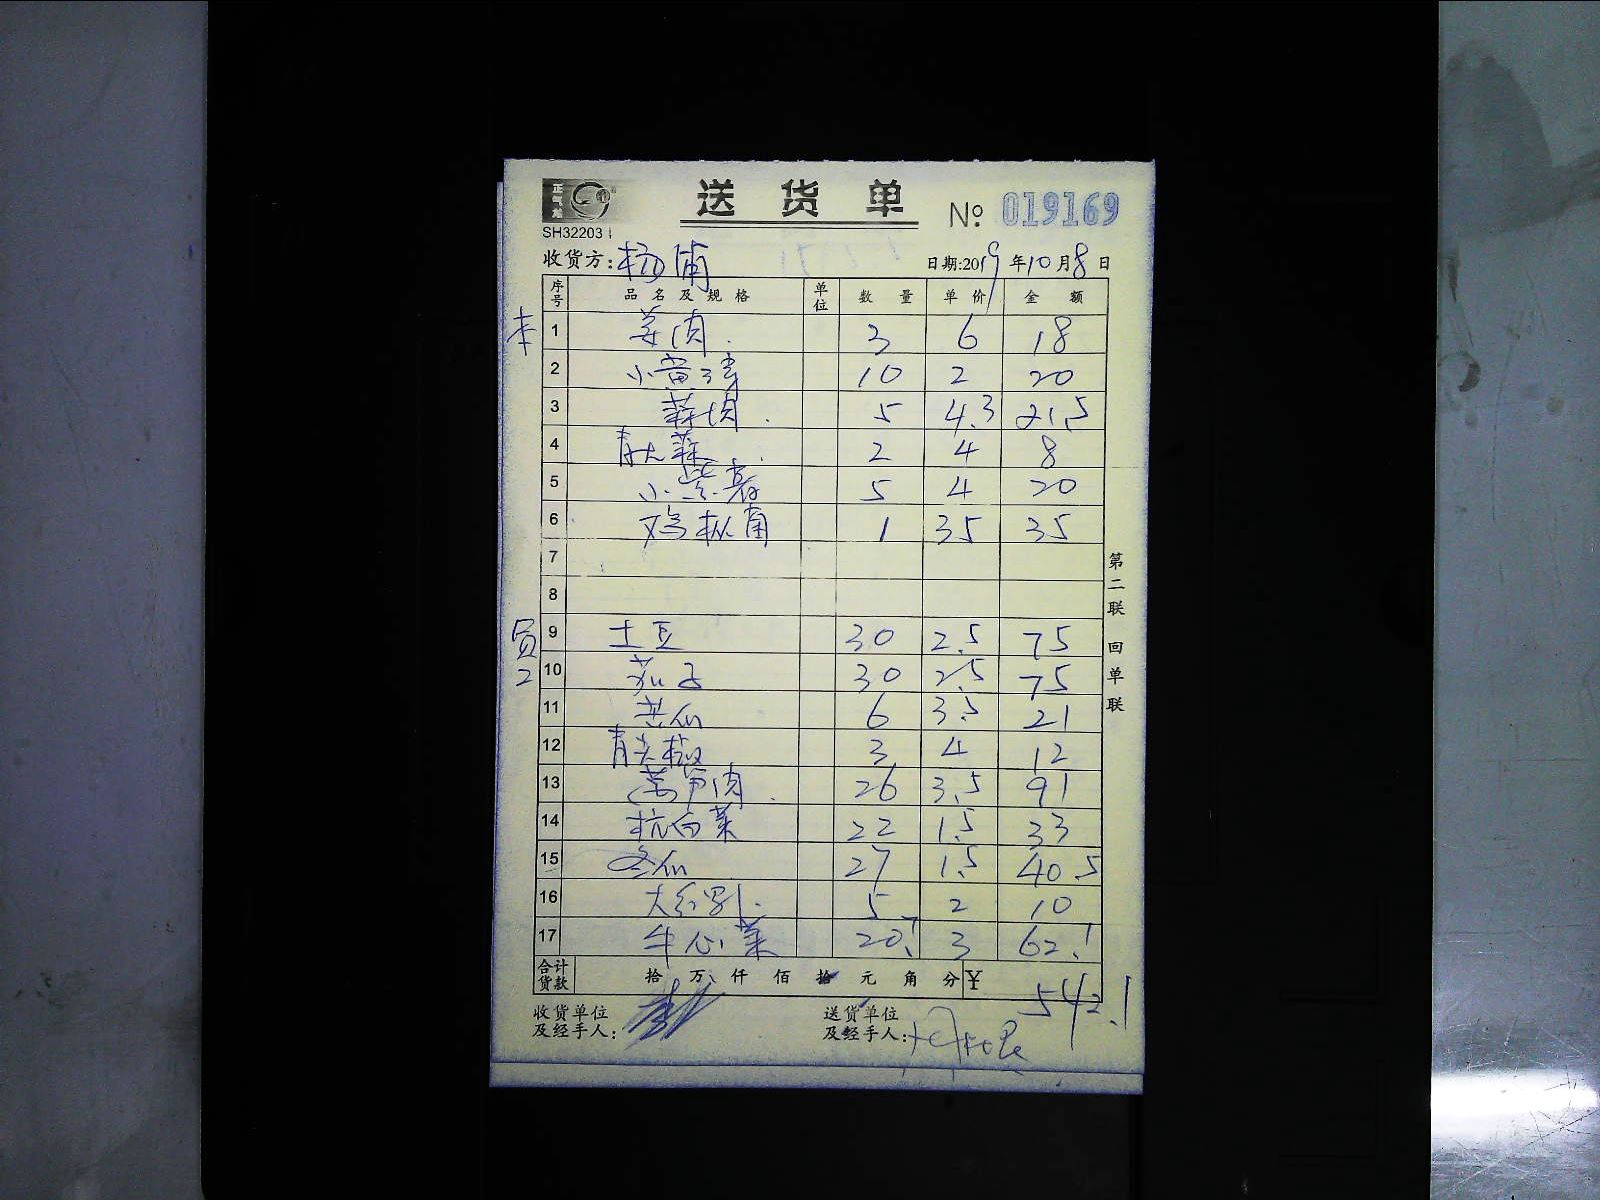 正气龙
SH32203
送货单 № 019169
收货方: 杨浦 日期:2019年10月8日
序号 品名及规格 单位 数量 单价 金额
本 1 姜肉 3 6 18
2 小黄 10 2 20
3 蒜肉 5 4.3 21.5
4 青大蒜 2 4 8
5 小紫薯 5 4 20
6 鸡枞菌 1 35 35
7
8
员2 9 土豆 30 2.5 75
10 茄子 30 2.5 75
11 苦瓜 6 3.5 21
12 青尖椒 3 4 12
13 莴笋肉 26 3.5 91
14 杭白菜 22 1.5 33
15 冬瓜 27 1.5 40.5
16 大红 5 2 10
17 牛心菜 20.7 3 62.1
合计货款 拾 万 仟 佰 拾 元 角 分 ¥ 542.1
收货单位及经手人:
送货单位及经手人:
第二联 回单联